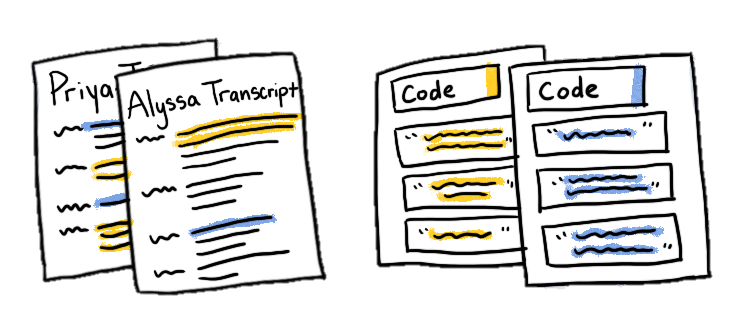 Priya T
Alyssa Transcript
Code
Code